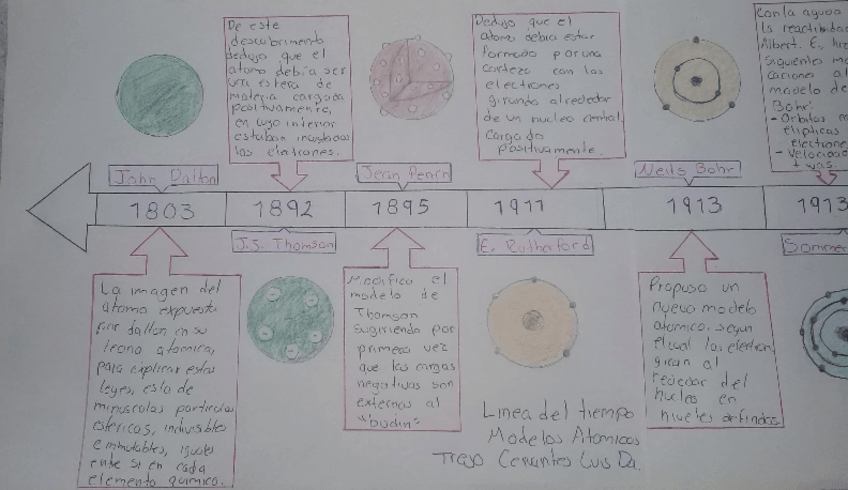 De este
descubrimiento
dedujo que el
átomo debía ser
una esfera de
materia cargada
positivamente,
en cuyo interior
estaban incrustados
los electrones.
Dedujo que el
átomo debía estar
formado por una
corteza con los
electrones
girando alrededor
de un nucleo central
cargado
positivamente.
Con la ayuda
la
Albert. E, hizo
siguientes
al
modelo de
Bohr:
- Orbitas
elipticas
electrone
- Velocidad
John Dalton
Jean Peren
Neils Bohr
1803
1892
1895
1911
1913
1913
J.S. Thomson
E. Rutherford
Sommer
La imagen del
atomo expuesta
por dalton en su
teoria atomica,
para explicar estas
leyes, es la de
minusculas particulas
esfericas, indivisibles
e inmutables, iguales
entre si en cada
elemento quimico.
Modifico el
modelo de
Thomson
sugiriendo por
primera vez
que las cargas
negativas son
externas al
"budin"
Propuso un
nuevo modelo
atomico, segun
el cual los electron
giran al
rededor del
nucleo en
niveles definidos
Linea del tiempo
Modelos Atomicos
Trejo Cervantes Luis Da.